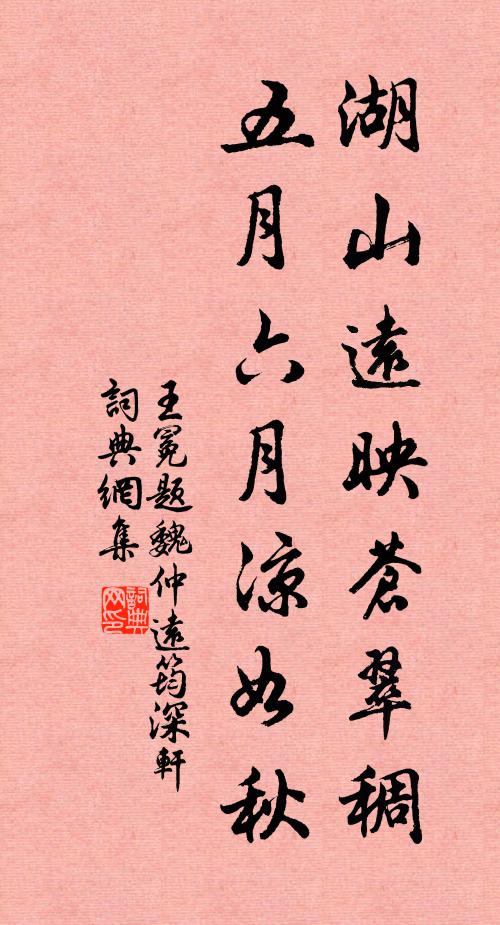 湖山遠映蒼翠稠
五月六月涼如秋
王冕题魏仲遠筠深軒
詞典網集
詞典网印